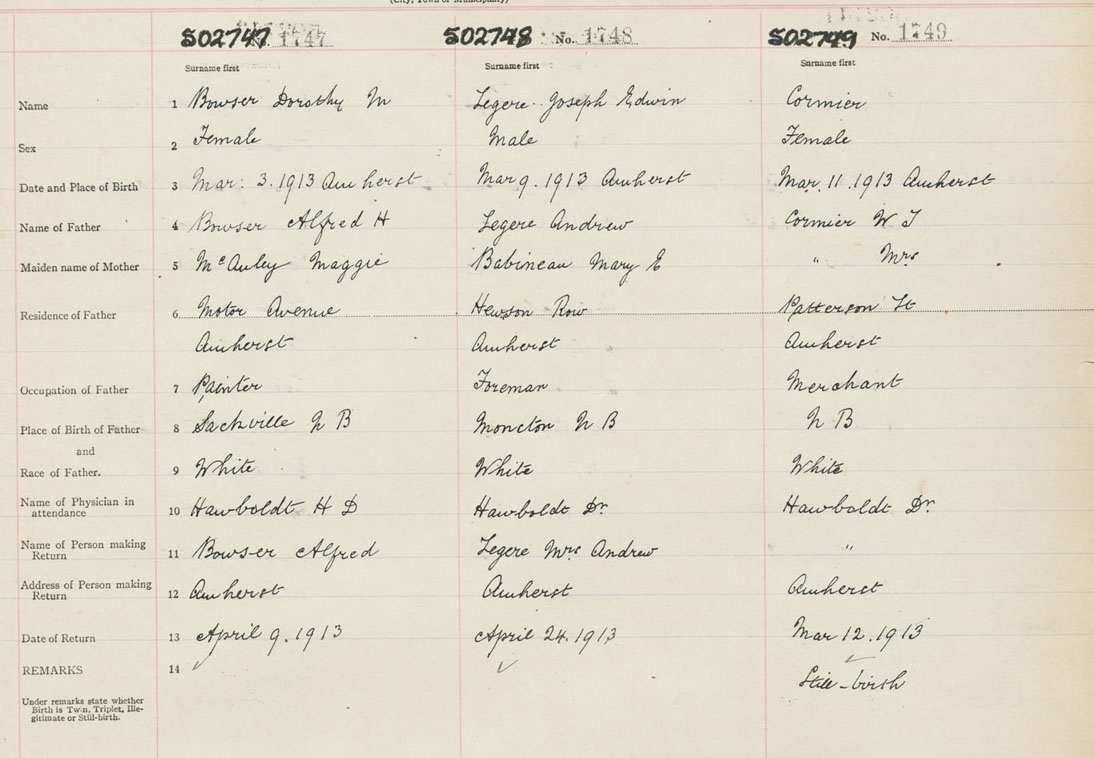 (City, Town or Municipality)
S02747 No. 1747 S02748 No. 1748 S02749 No. 1749
Surname first Surname first Surname first
Name 1 Bowser Dorothy M Legere Joseph Edwin Cormier
Sex 2 Female Male Female
Date and Place of Birth 3 Mar: 3. 1913 Amherst Mar 9. 1913 Amherst Mar. 11. 1913 Amherst
Name of Father 4 Bowser Alfred H Legere Andrew Cormier W J
Maiden name of Mother 5 McAuley Maggie Babineau Mary E " Mrs
Residence of Father 6 Motor Avenue Hewson Row Patterson St
Amherst Amherst Amherst
Occupation of Father 7 Painter Foreman Merchant
Place of Birth of Father 8 Sackville N B Moncton N B N B
and
Race of Father. 9 White White White
Name of Physician in
attendance 10 Hawboldt H D Hawboldt Dr. Hawboldt Dr.
Name of Person making
Return 11 Bowser Alfred Legere Mrs Andrew "
Address of Person making
Return 12 Amherst Amherst Amherst
Date of Return 13 April 9. 1913 April 24. 1913 Mar 12. 1913
REMARKS 14 ✓ ✓ ✓
Still-birth
Under remarks state whether
Birth is Twin, Triplet, Ille-
gitimate or Still-birth.